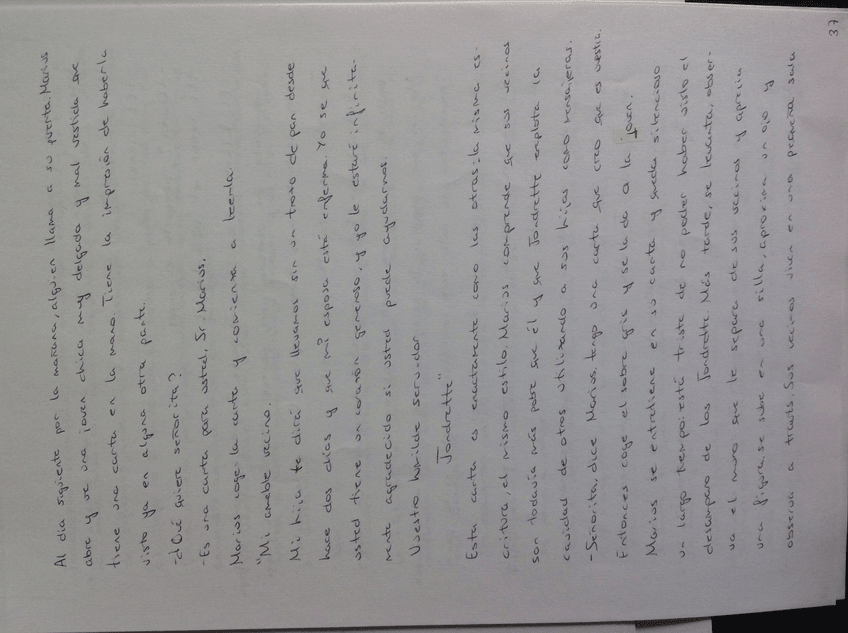 Al día siguiente por la mañana, alguien llama a su puerta. Marius
abre y ve una joven chica muy delgada y mal vestida que
tiene una carta en la mano. Tiene la impresión de haberla
visto ya en alguna otra parte.
-¿Qué quiere señorita?
-Es una carta para usted, Sr. Marius.
Marius coge la carta y comienza a leerla.
"Mi amable vecino.
Mi hija te dirá que llevamos sin un trozo de pan desde
hace dos días y que mi esposa está enferma. Yo se que
usted tiene un corazón generoso, y yo le estaré infinita-
mente agradecido si usted puede ayudarnos.
Vuestro humilde servidor
Jondrette"
Esta carta es exactamente como las otras: la misma es-
critura, el mismo estilo. Marius comprende que sus vecinos
son todavía más pobre que él y que Jondrette explota la
cavidad de otros utilizando a sus hijas como mensajeras.
-Señorita, dice Marius, tengo una carta que creo que es vestia.
Entonces coge el sobre gris y se la da a la joven.
Marius se entretiene en su carta y queda silencioso
un largo tiempo: está triste de no poder haber visto el
desamparo de los Jondrette. Más tarde, se levanta, obser-
va el muro que le separa de sus vecinos y aprecia
una figura, se sube en una silla, aproxima un ojo y
observa a través. Sus vecinos viven en una pequeña sala
37